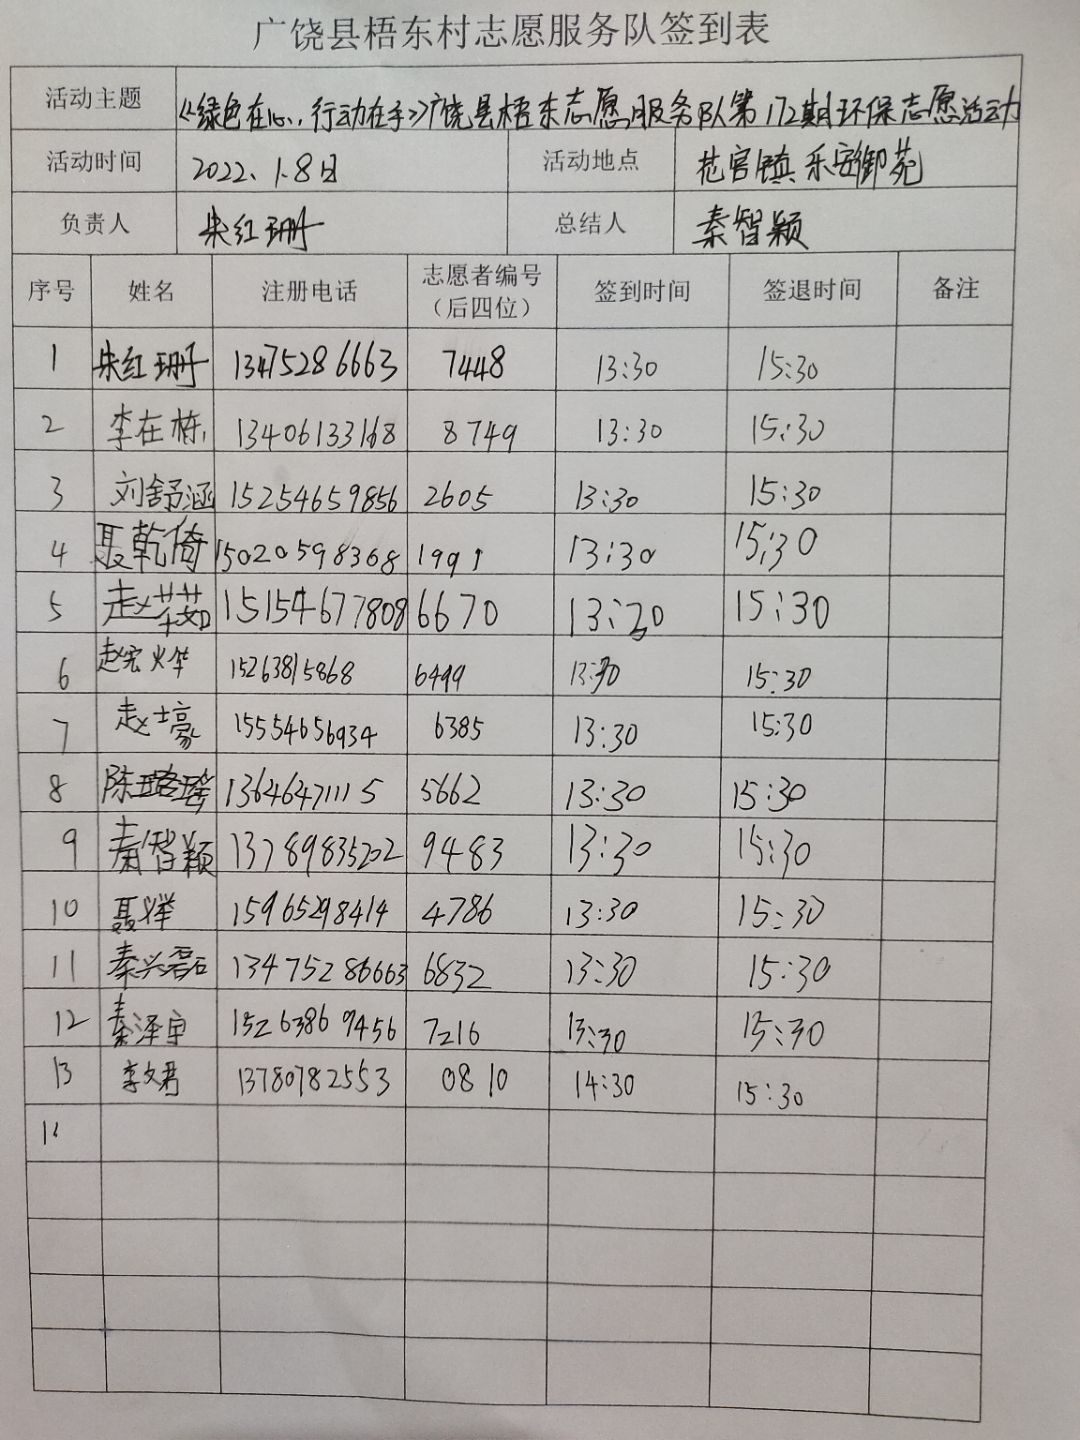 广饶县梧东村志愿服务队签到表
活动主题 《绿色在心，行动在手》广饶县梧东志愿服务队第172期环保志愿活动
活动时间 2022、1.8日 活动地点 花官镇乐安御苑
负责人 朱红珊 总结人 秦智颖
序号 姓名 注册电话 志愿者编号（后四位） 签到时间 签退时间 备注
1 朱红珊 13475286663 7448 13:30 15:30
2 李在栋 13406133168 8749 13:30 15:30
3 刘舒涵 15254659856 2605 13:30 15:30
4 聂乾倚 15020598368 1991 13:30 15:30
5 赵茹 15154677808 6670 13:20 15:30
6 赵宏烨 15263815868 6499 13:30 15:30
7 赵士豪 15554656934 6385 13:30 15:30
8 陈璐瑶 13646471115 5662 13:30 15:30
9 秦智颖 13789835202 9483 13:30 15:30
10 聂 15965298414 4786 13:30 15:30
11 秦兴磊 13475286663 6832 13:30 15:30
12 秦泽宇 15263869456 7216 13:30 15:30
13 李文君 13780782553 0810 14:30 15:30